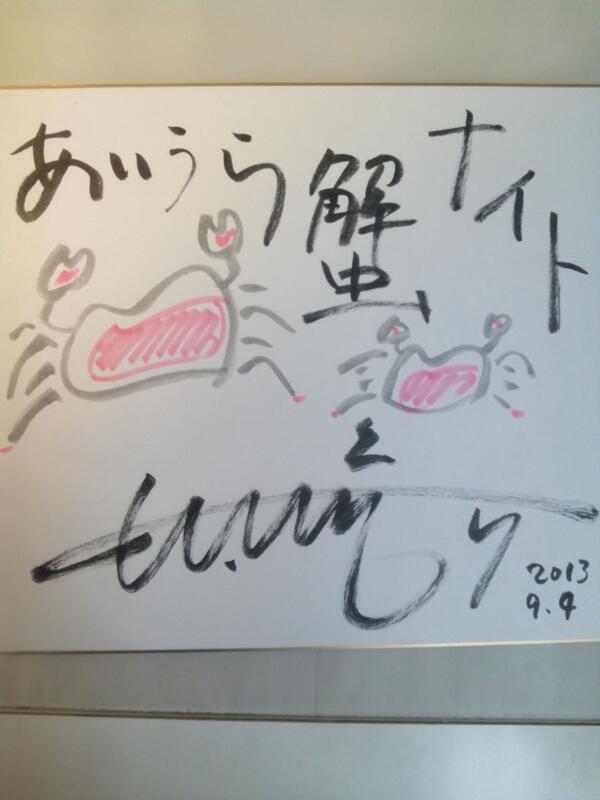 あいうら蟹ナイト
2013
9.4